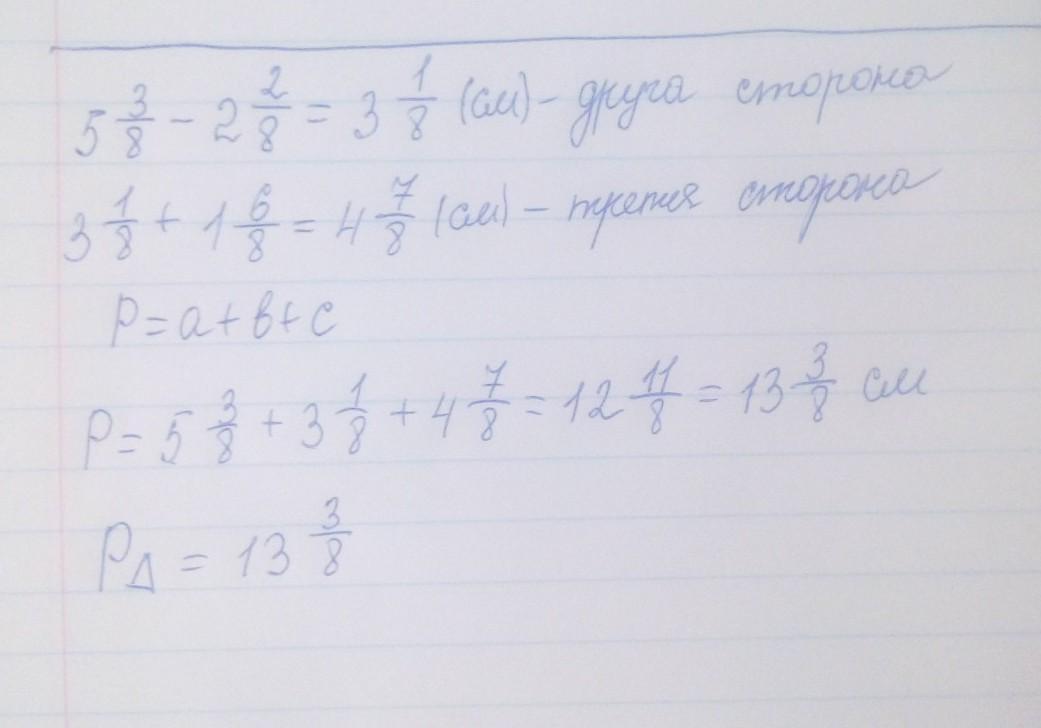 5 3/8 - 2 2/8 = 3 1/8 (см) - друга сторона
3 1/8 + 1 6/8 = 4 7/8 (см) - третя сторона
P = a + b + c
P = 5 3/8 + 3 1/8 + 4 7/8 = 12 11/8 = 13 3/8 см
PΔ = 13 3/8